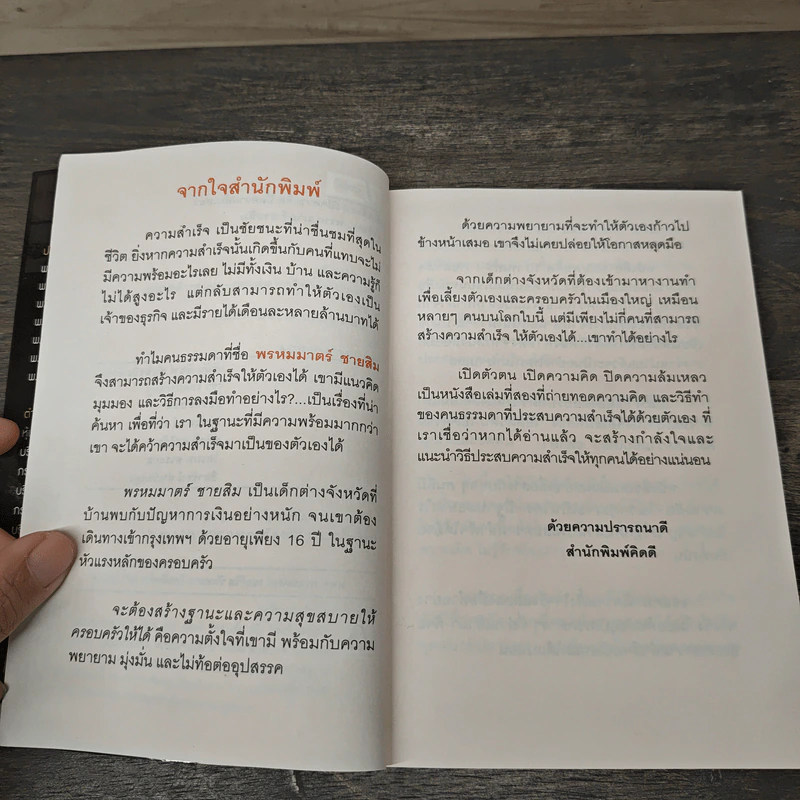 จากใจสำนักพิมพ์
ความสำเร็จ เป็นชัยชนะที่น่าชื่นชมที่สุดใน
ชีวิต ยิ่งหากความสำเร็จนั้นเกิดขึ้นกับคนที่แทบจะไม่
มีความพร้อมอะไรเลย ไม่มีทั้งเงิน บ้าน และความรู้ก็
ไม่ได้สูงอะไร แต่กลับสามารถทำให้ตัวเองเป็น
เจ้าของธุรกิจ และมีรายได้เดือนละหลายล้านบาทได้
ทำไมคนธรรมดาที่ชื่อ พรหมมาตร์ ชายสิม
จึงสามารถสร้างความสำเร็จให้ตัวเองได้ เขามีแนวคิด
มุมมอง และวิธีการลงมือทำอย่างไร?...เป็นเรื่องที่น่า
ค้นหา เพื่อที่ว่า เรา ในฐานะที่มีความพร้อมมากกว่า
เขา จะได้คว้าความสำเร็จมาเป็นของตัวเองได้
พรหมมาตร์ ชายสิม เป็นเด็กต่างจังหวัดที่
บ้านพบกับปัญหาการเงินอย่างหนัก จนเขาต้อง
เดินทางเข้ากรุงเทพฯ ด้วยอายุเพียง 16 ปี ในฐานะ
หัวแรงหลักของครอบครัว
จะต้องสร้างฐานะและความสุขสบายให้
ครอบครัวให้ได้ คือความตั้งใจที่เขามี พร้อมกับความ
พยายาม มุ่งมั่น และไม่ท้อต่ออุปสรรค
ด้วยความพยายามที่จะทำให้ตัวเองก้าวไป
ข้างหน้าเสมอ เขาจึงไม่เคยปล่อยให้โอกาสหลุดมือ
จากเด็กต่างจังหวัดที่ต้องเข้ามาหางานทำ
เพื่อเลี้ยงตัวเองและครอบครัวในเมืองใหญ่ เหมือน
หลายๆ คนบนโลกใบนี้ แต่มีเพียงไม่กี่คนที่สามารถ
สร้างความสำเร็จ ให้ตัวเองได้...เขาทำได้อย่างไร
เปิดตัวตน เปิดความคิด ปิดความล้มเหลว
เป็นหนังสือเล่มที่สองที่ถ่ายทอดความคิด และวิธีทำ
ของคนธรรมดาที่ประสบความสำเร็จได้ด้วยตัวเอง ที่
เราเชื่อว่าหากได้อ่านแล้ว จะสร้างกำลังใจและ
แนะนำวิธีประสบความสำเร็จให้ทุกคนได้อย่างแน่นอน
ด้วยความปรารถนาดี
สำนักพิมพ์คิดดี